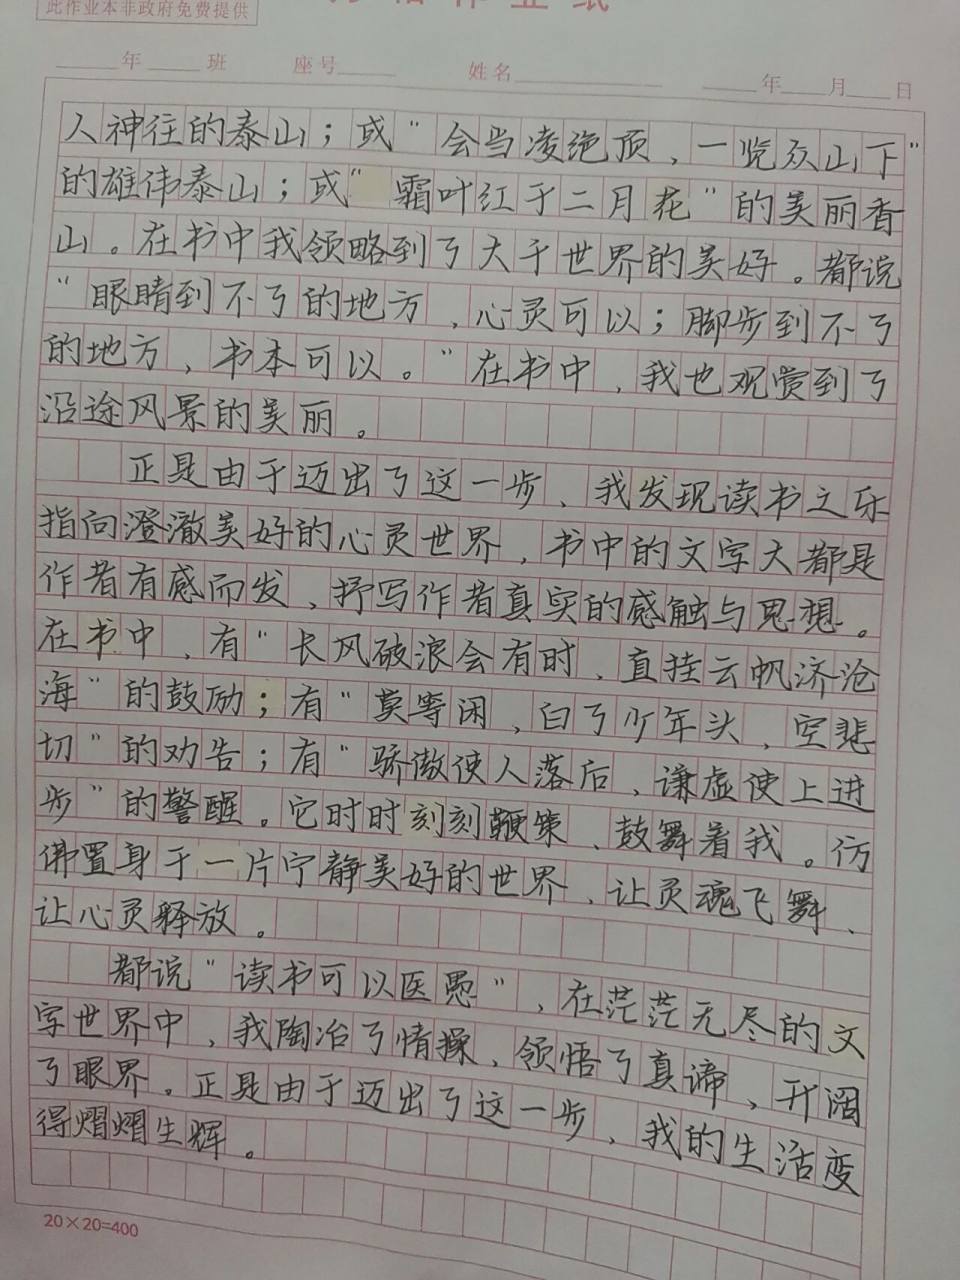 此作业本非政府免费提供
年 班 座号 姓名 年 月 日
人神往的泰山；或“会当凌绝顶，一览众山下”
的雄伟泰山；或“霜叶红于二月花”的美丽香
山。在书中我领略到了大千世界的美好。都说
“眼睛到不了的地方，心灵可以；脚步到不了
的地方，书本可以。”在书中，我也观赏到了
沿途风景的美丽。
正是由于迈出了这一步，我发现读书之乐
指向澄澈美好的心灵世界，书中的文字大都是
作者有感而发，抒写作者真实的感触与思想。
在书中，有“长风破浪会有时，直挂云帆济沧
海”的鼓励；有“莫等闲，白了少年头，空悲
切”的劝告；有“骄傲使人落后，谦虚使上进
步”的警醒。它时时刻刻鞭策、鼓舞着我。仿
佛置身于一片宁静美好的世界，让灵魂飞舞，
让心灵释放。
都说“读书可以医愚”，在茫茫无尽的文
字世界中，我陶冶了情操，领悟了真谛，开阔
了眼界。正是由于迈出了这一步，我的生活变
得熠熠生辉。
20×20=400